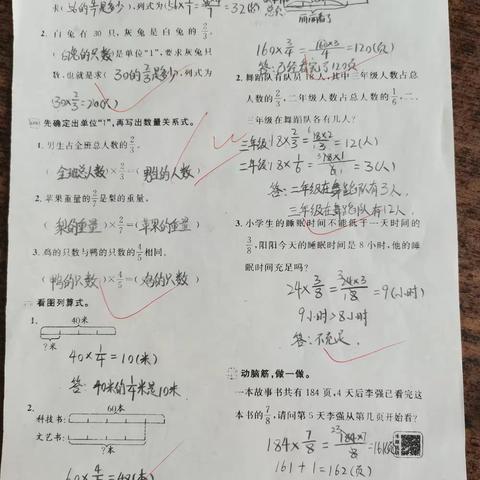 求(56的4/7是多少),列式为(56×4/7=32(只)
2. 白兔有30只,灰兔是白兔的2/3。
(白兔的只数)是单位“1”,要求灰兔只
数,也就是求(30的2/3是多少),列式为
30×2/3=20(只)
先确定出单位“1”,再写出数量关系式。
1. 男生占全班总人数的2/3。
(全班总人数)×2/3=(男生的人数)
2. 苹果重量的2/7是梨的重量。
(梨的重量)×2/7=(苹果的重量)
3. 鸡的只数与鸭的只数的4/5相同。
(鸭的只数)×4/5=(鸡的只数)
看图列算式。
1.
40米
?米
40×1/4=10(米)
答:40米的1/4米是10米
2.
60本
科技书:
文艺书:
?本
60×4/5=48(本)
160×3/4=160×3/4=120(只)
2. 舞蹈队有队员18人,其中三年级人数占总
人数的2/3,二年级人数占总人数的1/6,二、
三年级在舞蹈队各有几人?
三年级18×2/3=18×2/3=12(人)
二年级18×1/6=18×1/6=3(人)
答:二年级在舞蹈队有3人,
三年级在舞蹈队有12人.
3. 小学生的睡眠时间不能低于一天时间的
3/8,阳阳今天的睡眠时间是8小时,他的睡
眠时间充足吗?
24×3/8=24×3/8=9(小时)
9小时>8小时
答:不充足.
动脑筋,做一做。
一本故事书共有184页,4天后李强已看完这
本书的7/8,请问第5天李强从第几页开始看?
184×7/8=184×7/8=161(页)
161+1=162(页)